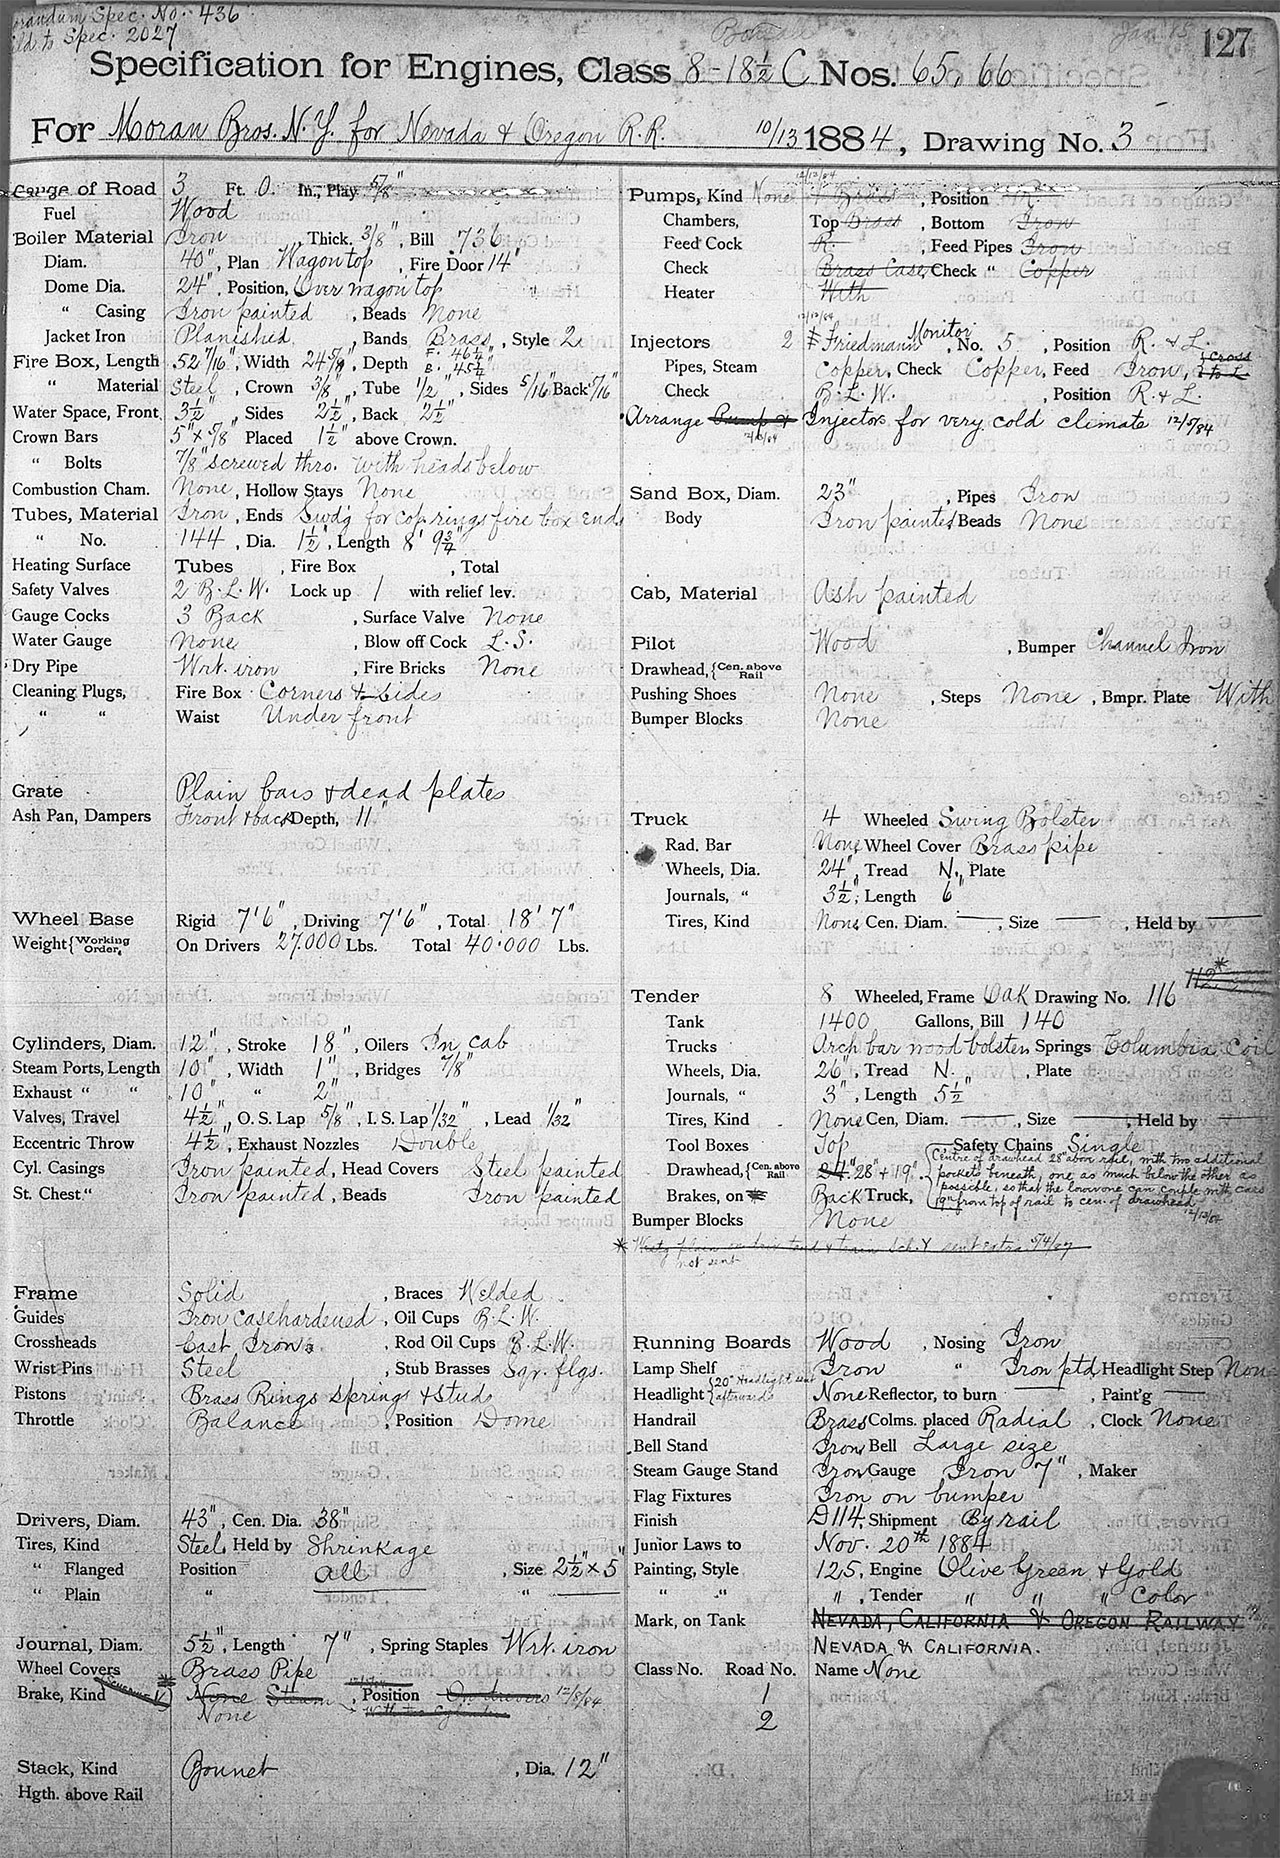 Spec. No. 436
to Spec. 2027
127
Specification for Engines, Class 8-18½ C Nos. 65, 66
For Moran Bros. N. Y. for Nevada & Oregon R.R. 10/13 1884, Drawing No. 3
Gauge of Road 3 Ft. 0. In., Play 5/8"
Fuel Wood
Boiler Material Iron, Thick. 3/8", Bill 736
Diam. 40", Plan Wagon top, Fire Door 14"
Dome Dia. 24", Position, Over wagon top
" Casing Iron painted, Beads None
Jacket Iron Planished, Bands Brass, Style 2
Fire Box, Length 52 7/16", Width 24 5/8", Depth F. 46¼" B. 45¼"
" Material Steel, Crown 3/8", Tube 1/2", Sides 5/16" Back 5/16"
Water Space, Front 3½", Sides 2½", Back 2½"
Crown Bars 5" x 5/8" Placed 1½" above Crown.
" Bolts 7/8" screwed thro. with heads below
Combustion Cham. None, Hollow Stays None
Tubes, Material Iron, Ends Swd'g for cop rings fire box ends
" No. 144, Dia. 1½", Length 8' 9¾"
Heating Surface Tubes , Fire Box , Total
Safety Valves 2 B.L.W. Lock up 1 with relief lev.
Gauge Cocks 3 Back, Surface Valve None
Water Gauge None, Blow off Cock L.S.
Dry Pipe Wrt. iron, Fire Bricks None
Cleaning Plugs, Fire Box Corners & Sides
" " Waist Under front
Grate Plain bars & dead plates
Ash Pan, Dampers Front & back Depth, 11"
Wheel Base Rigid 7'6", Driving 7'6", Total 18' 7"
Weight {Working Order, On Drivers 27.000 Lbs. Total 40.000 Lbs.
Cylinders, Diam. 12", Stroke 18", Oilers In cab
Steam Ports, Length 10", Width 1", Bridges 7/8"
Exhaust " " 10" " 2"
Valves, Travel 4½", O. S. Lap 5/8", I. S. Lap 1/32", Lead 1/32"
Eccentric Throw 4½", Exhaust Nozzles Double
Cyl. Casings Iron painted, Head Covers Steel painted
St. Chest " Iron painted, Beads Iron painted
Frame Solid, Braces Welded
Guides Iron casehardened, Oil Cups B.L.W.
Crossheads Cast Iron, Rod Oil Cups B.L.W.
Wrist Pins Steel, Stub Brasses Sqr. flgs.
Pistons Brass Rings Springs & Studs
Throttle Balance, Position Dome
Drivers, Diam. 43", Cen. Dia. 38"
Tires, Kind Steel, Held by Shrinkage
" Flanged Position all, Size 2½" x 5"
" Plain " "
Journal, Diam. 5½", Length 7", Spring Staples Wrt. iron
Wheel Covers Brass Pipe
Brake, Kind None Steam, Position On drivers 12/8/84
None
Stack, Kind Bonnet, Dia. 12"
Hgth. above Rail
12/12/84
Pumps, Kind None 1 Brass, Position R.
Chambers, Top Brass, Bottom Iron
Feed Cock R., Feed Pipes Iron
Check Brass Case, Check " Copper
Heater With
12/12/84
Injectors 2 Friedmann Monitor, No. 5, Position R. & L.
Pipes, Steam Copper, Check Copper, Feed Iron, {Cross R to L
Check B.L.W., Position R. & L.
Arrange Pump & Injectors for very cold climate 12/5/84
Sand Box, Diam. 23", Pipes Iron
Body Iron painted Beads None
Cab, Material Ash painted
Pilot Wood, Bumper Channel Iron
Drawhead, {Cen. above Rail
Pushing Shoes None, Steps None, Bmpr. Plate With
Bumper Blocks None
Truck 4 Wheeled Swing Bolster
Rad. Bar None Wheel Cover Brass pipe
Wheels, Dia. 24", Tread N., Plate
Journals, " 3½", Length 6"
Tires, Kind None Cen. Diam. , Size , Held by
112 *
Tender 8 Wheeled, Frame Oak Drawing No. 116
Tank 1400 Gallons, Bill 140
Trucks Arch bar wood bolster, Springs Columbia Coil
Wheels, Dia. 26", Tread N., Plate
Journals, " 3", Length 5½"
Tires, Kind None Cen, Diam. , Size , Held by
Tool Boxes Top Safety Chains Single
Drawhead, {Cen. above Rail 24" 28" & 19" {Centre of drawhead 28" above rail, with two additional
pockets beneath one as much below the other as
possible, so that the lower one can couple with cars
19" from top of rail to cen. of drawhead
12/13/84
Brakes, on Back Truck,
Bumper Blocks None
not sent
Running Boards Wood, Nosing Iron
Lamp Shelf Iron " Iron ptd, Headlight Step None
Headlight {20" Headlight sent afterwards None Reflector, to burn , Paint'g
Handrail Brass Colms. placed Radial, Clock None
Bell Stand Iron, Bell Large size
Steam Gauge Stand Iron Gauge Iron 7", Maker
Flag Fixtures Iron on bumper
Finish D114, Shipment By rail
Junior Laws to Nov. 20th 1884
Painting, Style 125, Engine Olive Green & Gold
" " ", Tender " " " Color
Mark, on Tank NEVADA, CALIFORNIA & OREGON RAILWAY
NEVADA & CALIFORNIA.
Class No. Road No. Name None
1
2